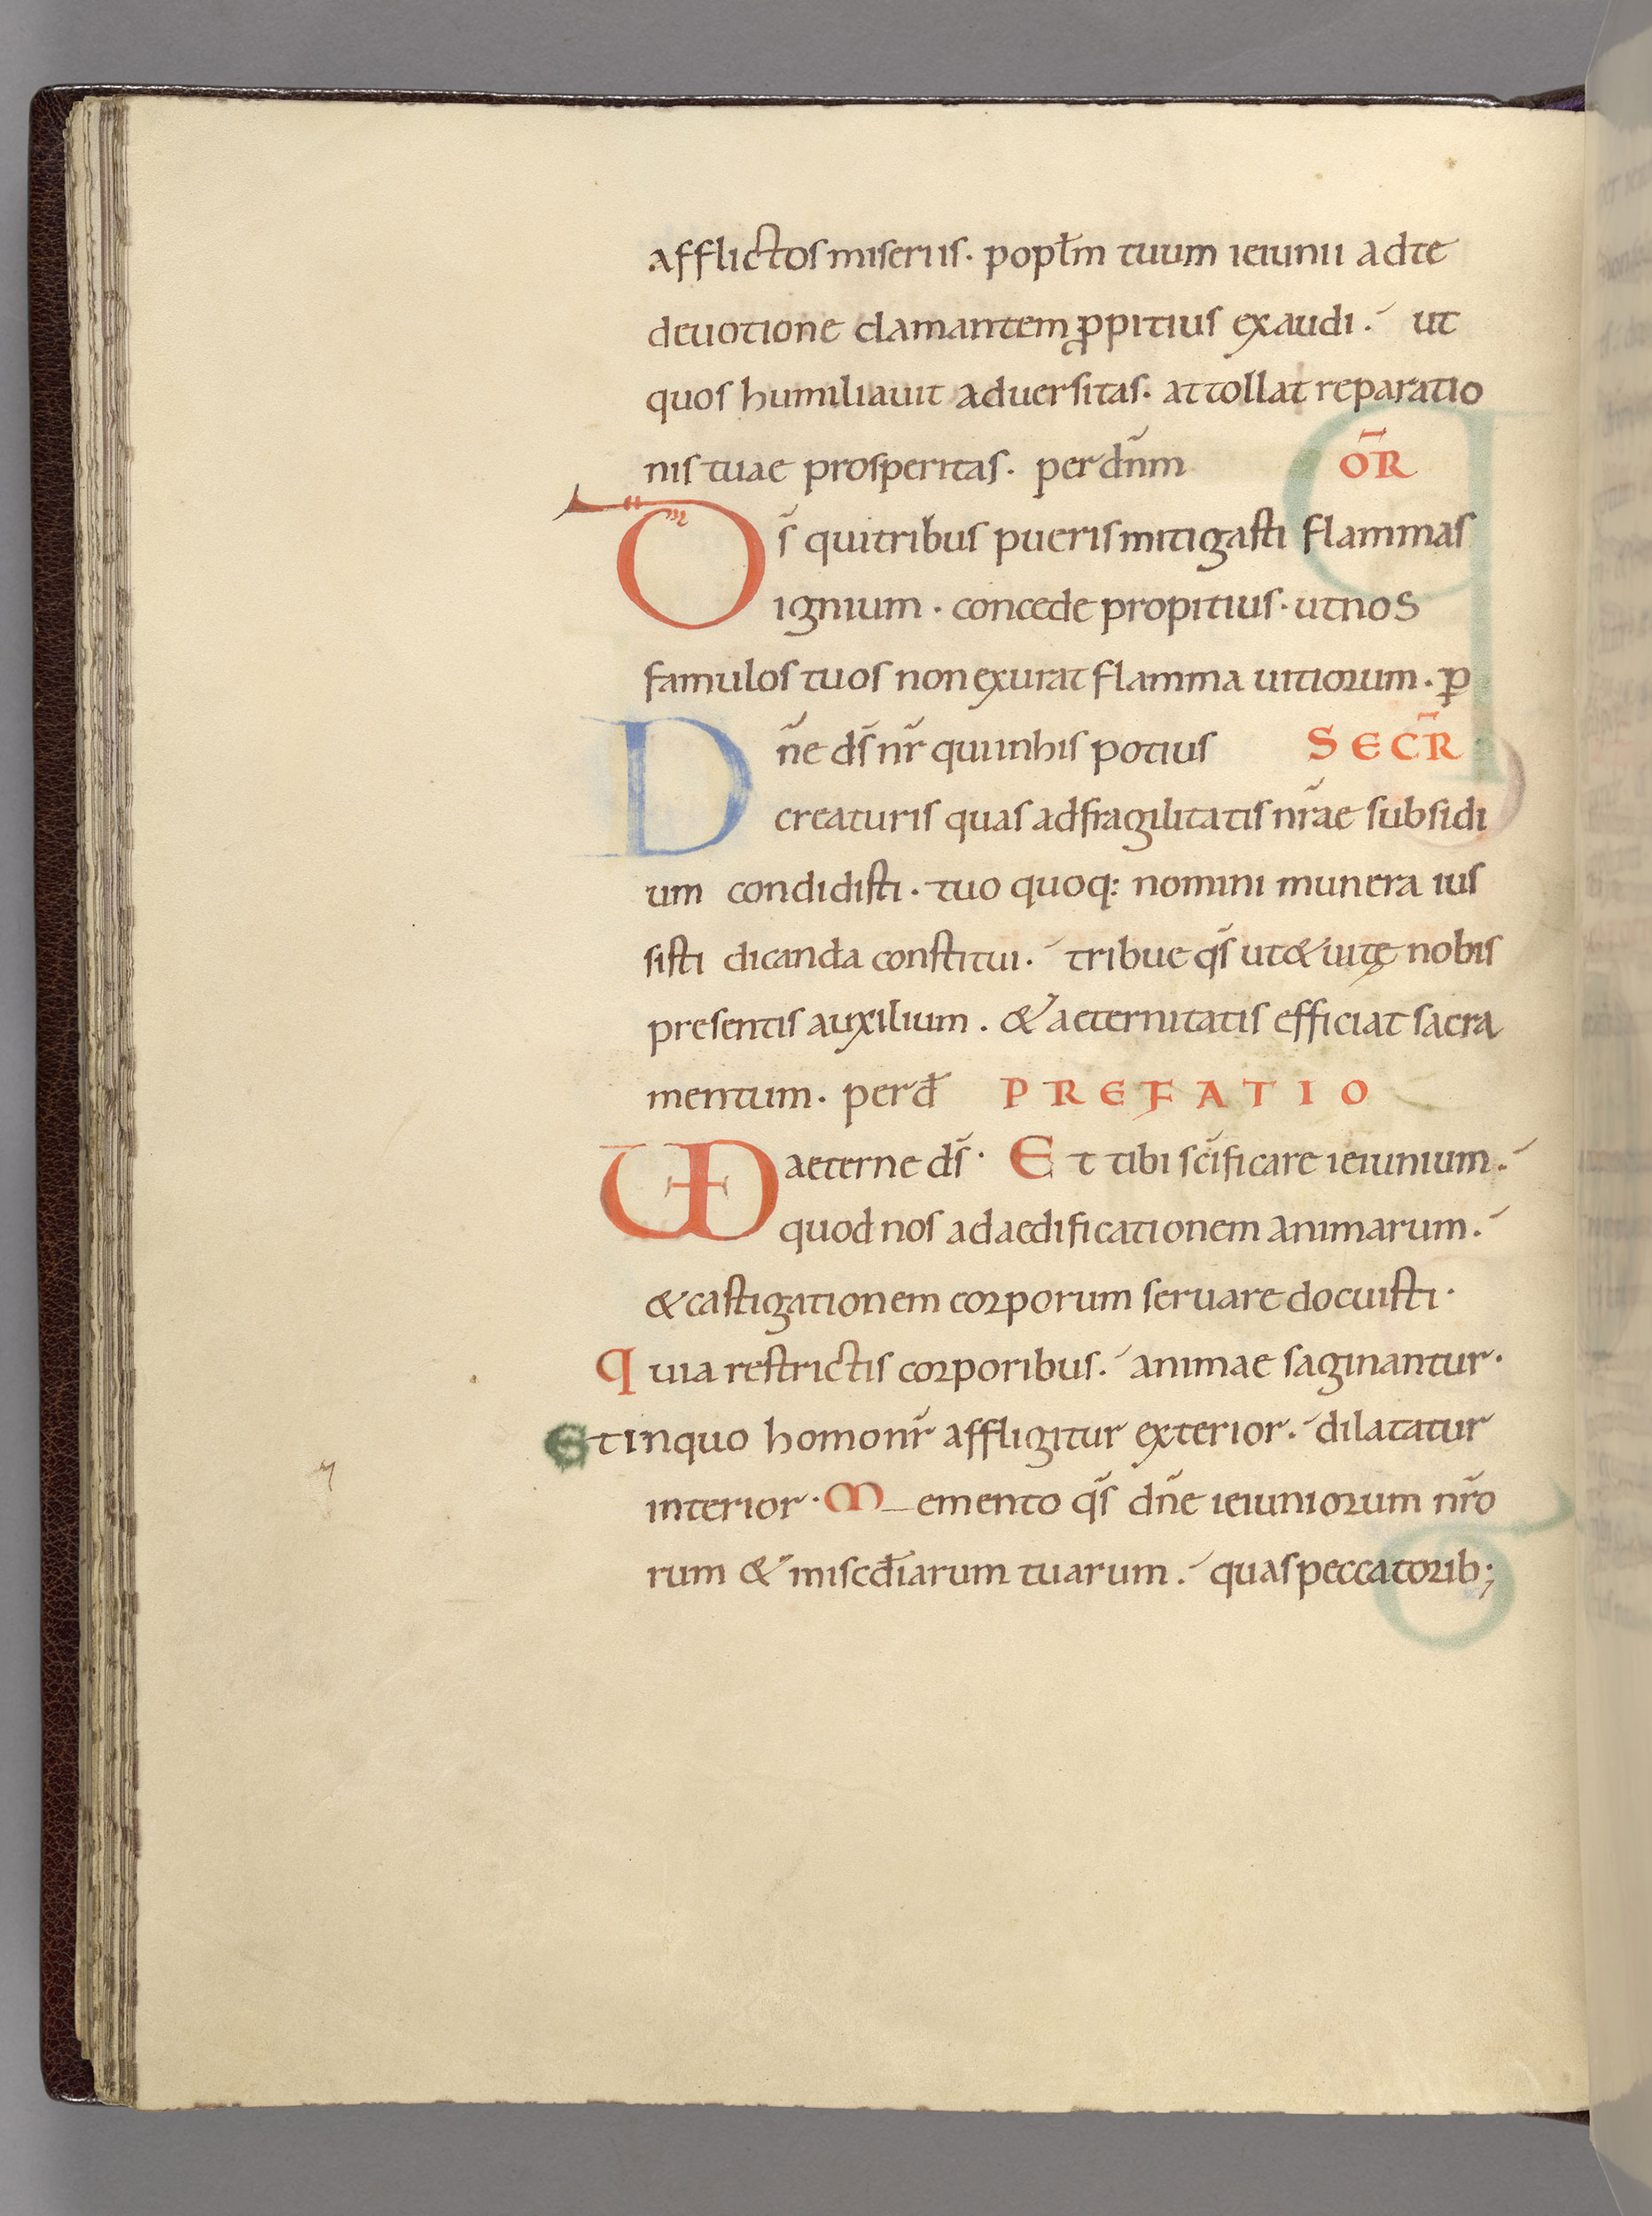 afflictos miseriis. popl̄m tuum ieiunii ad te
deuotione clamantem ꝓpitius exaudi. ut
quos humiliauit aduersitas. attollat reparatio
nis tuae prosperitas. per dn̄m OR̄
Ds̄ qui tribus pueris mitigasti flammas
ignium. concede propitius. ut nos
famulos tuos non exurat flamma uitiorum. ꝑ
Dn̄e ds̄ nr̄ qui in his potius SECR̄
creaturis quas ad fragilitatis nr̄ae subsidi
um condidisti. tuo quoq: nomini munera ius
sisti dicanda constitui. tribue qs̄ ut & uitę nobis
presentis auxilium. & aeternitatis efficiat sacra
mentum. per d̄ PREFATIO
VD aeterne ds̄. Et tibi sc̄ificare ieiunium.
quod nos ad aedificationem animarum.
& castigationem corporum seruare docuisti.
Quia restrictis corporibus. animae saginantur.
Et in quo homo nr̄ affligitur exterior. dilatatur
interior. Memento qs̄ dn̄e ieiuniorum nr̄o
rum & miscd̄iarum tuarum. quas peccatorib;